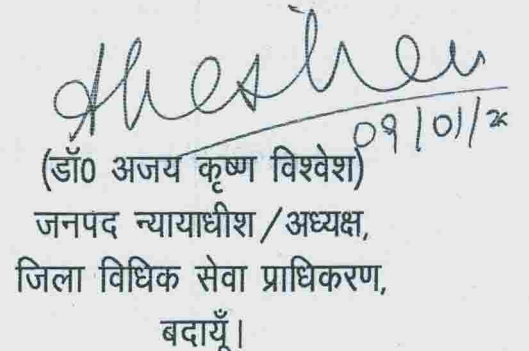 09/01/2
(डॉ0 अजय कृष्ण विश्वेश)
जनपद न्यायाधीश/अध्यक्ष,
जिला विधिक सेवा प्राधिकरण,
बदायूँ।